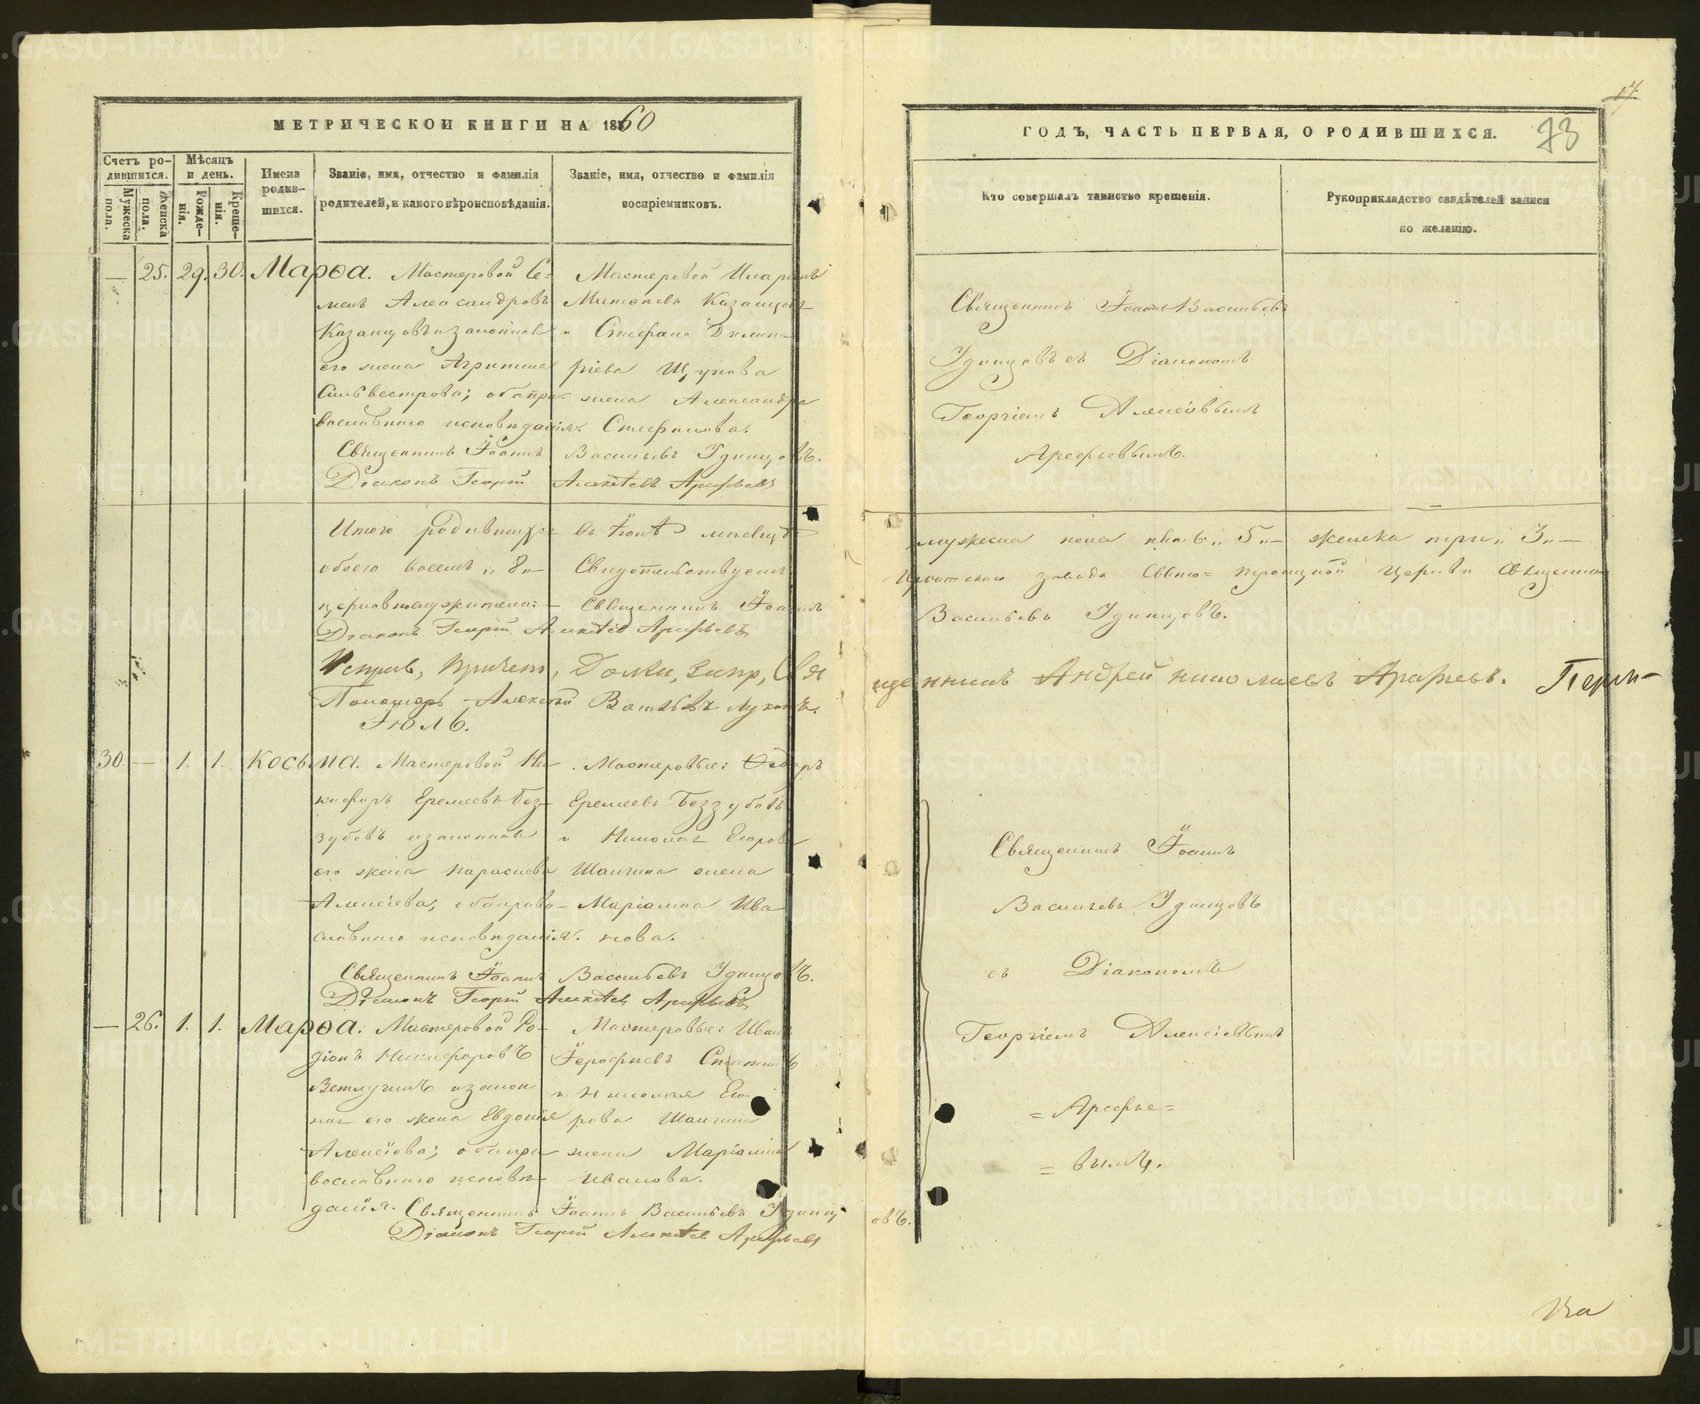 МЕТРИЧЕСКОЙ КНИГИ НА 1860
Счетъ родившихся.
Мужеска пола.
Женска пола.
Мѣсяцъ и день.
Рожденія.
Крещенія.
Имена родившихся.
Званіе, имя, отчество и фамилія
родителей, и какого вѣроисповѣданія.
Званіе, имя, отчество и фамилія
воспріемниковъ.
— 25. 29. 30. Марѳа. Мастеровой Се-
менъ Александровъ
Казанцовъ и законная
его жена Агрипина
Сильвестрова; оба пра-
вославнаго исповѣданія.
Мастеровой Иларіонъ
Казанцовъ
и Стефана Димит-
ріева Щукова
жена Александра
Стефанова.
Священникъ Іоаннъ Васильевъ Удинцовъ.
Діаконъ Георгій Алексѣевъ Арефьевъ
Итого родившихся въ Іюнѣ мѣсяцѣ
обоего восемь „8„— Свидѣтельствуемъ
церковнослужители: — Священникъ Іоаннъ
Діаконъ Георгій Алексѣевъ Арефьевъ
Пономарь Алексѣй Васильевъ
Іюль.
30. — 1. 1. Косьма. Мастеровой Ни-
кифоръ Еремеевъ Без-
зубовъ и законная
его жена Параскева
Алексіева, оба право-
славнаго исповѣданія.
Мастеровые: Ѳедоръ
Еремеевъ Беззубовъ
и Николая Егорова
Шангина жена
Маріамна Ива
нова.
Священникъ Іоаннъ Васильевъ Удинцовъ.
Діаконъ Георгій Алексѣевъ Арефьевъ
— 26. 1. 1. Марѳа. Мастеровой Ро-
діонъ Никифоровъ
и закон
ная его жена Евдокія
Алексіева; оба пра
вославнаго исповѣ-
данія.
Мастеровые: Иванъ
Іерофеевъ
и Николая Его-
рова Шангина
жена Маріамна
Иванова.
Священникъ Іоаннъ Васильевъ Удинцовъ.
Діаконъ Георгій Алексѣевъ Арефьевъ
17
73
ГОДЪ, ЧАСТЬ ПЕРВАЯ, О РОДИВШИХСЯ.
Кто совершалъ таинство крещенія.
Рукоприкладство свидѣтелей записи
по желанію.
Священникъ Іоаннъ Васильевъ
Удинцовъ съ Діакономъ
Георгіемъ Алексіевымъ
Арефьевымъ.
мужеска пола пять „5„— женска три „3„—
завода Свято=Троицкой Церкви Священникъ
Васильевъ Удинцовъ.
щенникъ Андрей Николаевъ Арефьевъ.
Священникъ Іоаннъ
Васильевъ Удинцовъ
съ Діакономъ
Георгіемъ Алексіевымъ
= Арефье=
= вымъ.
METRIKI.GASO-URAL.RU